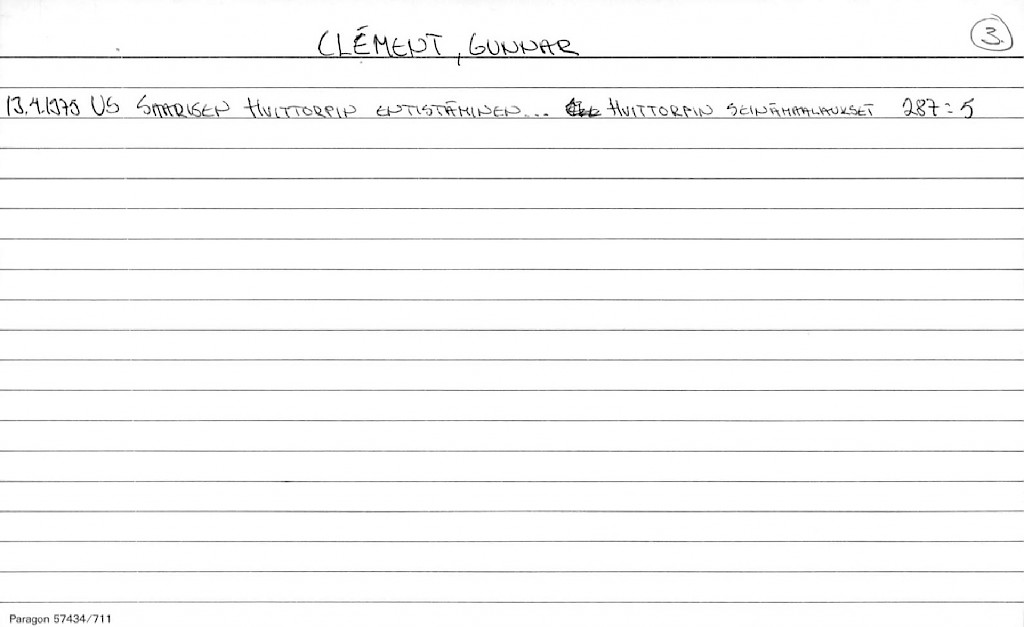 CLÉMENT, GUNNAR
3.
13.4.1975 US SAARISEN HVITTORPIN ENTISTÄMINEN... HVITTORPIN SEINÄMAALAUKSET 287:5
Paragon 57434/711